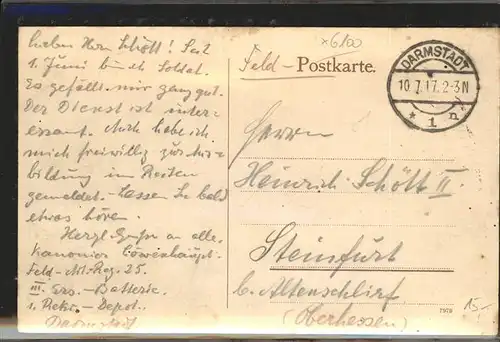 Lieber Herr Schött! Seit
1. Juni bin ich Soldat.
Es gefällt mir ganz gut.
Der Dienst ist inter-
essant. Auch habe ich
mich freiwillig zur Aus-
bildung im Reiten
gemeldet. Lassen Sie bald
etwas hören.
Herzl. Grüße an alle.
Kanonier Löwenhaupt.
Feld-Art.-Reg. 25.
III. Ers.-Batterie.
1. Rekr.-Depot.
Darmstadt
x6100
Feld-Postkarte.
DARMSTADT
10.7.17.2-3N
* 1 n
Herrn
Heinrich Schött II.
Steinfurt
b. Altenschlirf
(Oberhessen)
15.-
7979